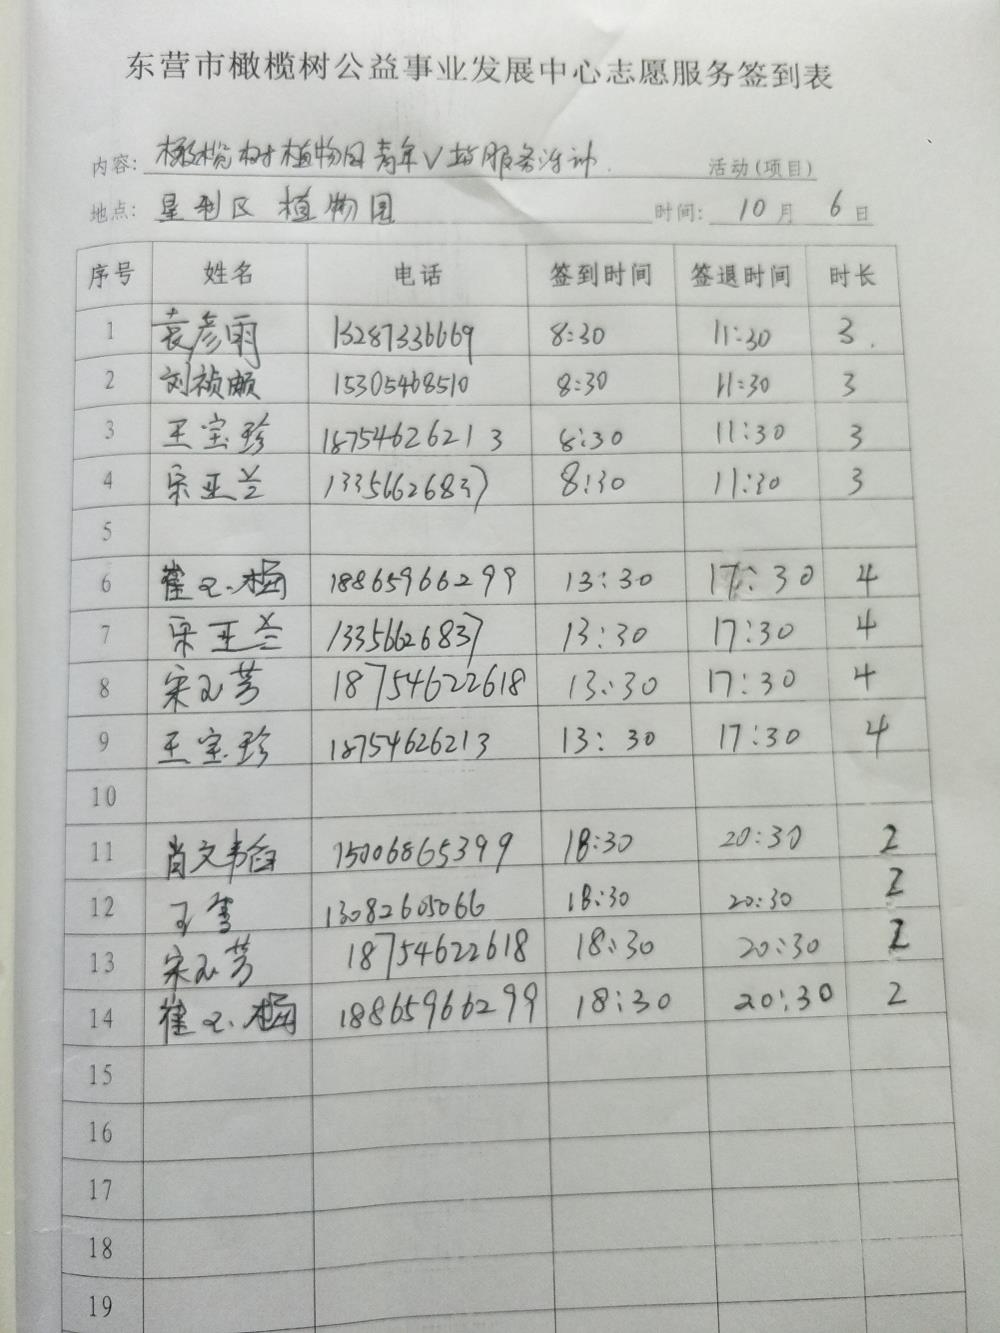 东营市橄榄树公益事业发展中心志愿服务签到表
内容: 橄榄树植物园青年V站服务活动 活动(项目)
地点: 垦利区 植物园 时间: 10月 6日
序号 姓名 电话 签到时间 签退时间 时长
1 袁彦雨 13287336669 8:30 11:30 3
2 刘祯頔 15305468510 8:30 11:30 3
3 王宝珍 18754626213 8:30 11:30 3
4 宋亚兰 13356626837 8:30 11:30 3
5
6 崔玉梅 18865966299 13:30 17:30 4
7 宋亚兰 13356626837 13:30 17:30 4
8 宋玉芳 18754622618 13:30 17:30 4
9 王宝珍 18754626213 13:30 17:30 4
10
11 肖文韬 15006865399 18:30 20:30 2
12 王雪 13082605066 18:30 20:30 2
13 宋玉芳 18754622618 18:30 20:30 2
14 崔玉梅 18865966299 18:30 20:30 2
15
16
17
18
19